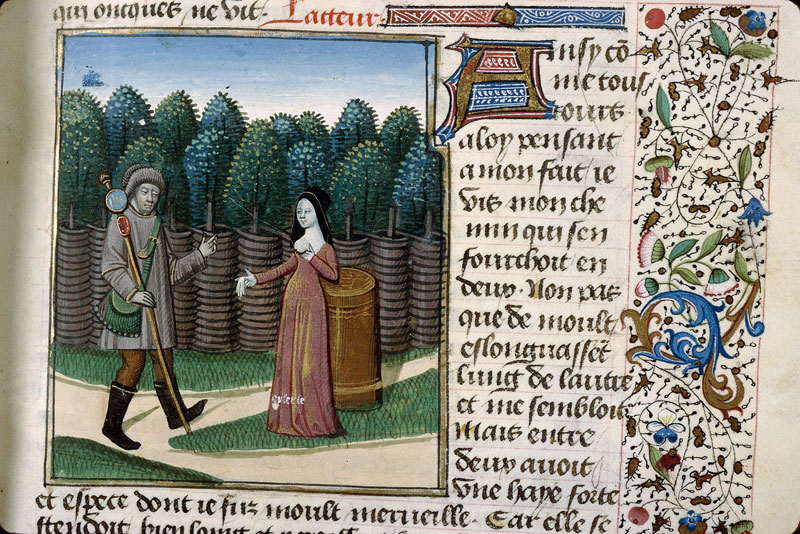 qui oncques ne vit. Lacteur
Ainsy cō
me tous
iours
aloy pensant
a mon fait ie
vis mon che
min qui sen
fourchoit en
deux. Non pas
que de moult
eslongnassēt
lung de lautre
et me sembloit
Mais entre
deux auoit
vne haye forte
et espece dont ie fuz moult merueille. Car elle se
stendoit bien loing et